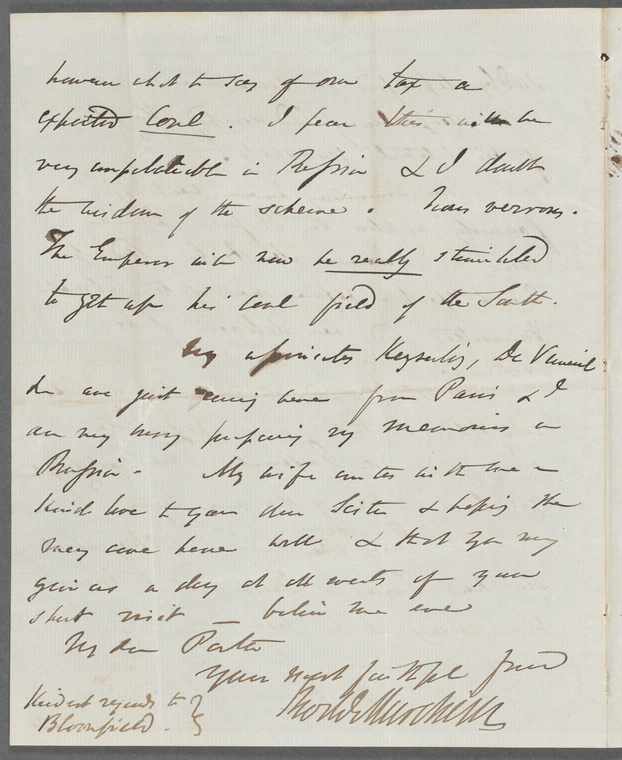 however what to say of our tax on
exported Coal. I fear this will be
very unpalatable in Russia & I doubt
the wisdom of the scheme.
The Emperor will now be really stimulated
to get up his coal field of the South.
My associates Keyserling, De Verneuil
are just coming here from Paris & I
am very busy preparing my memoirs on
Russia. My wife unites with me in
kind love to your dear Sister & hoping that
they are here well & that you may
give us a day at all events of your
short visit – believe me ever
My dear Porter
Your most faithful friend
Kindest regards to
Bloomfield.
Rod I Murchison